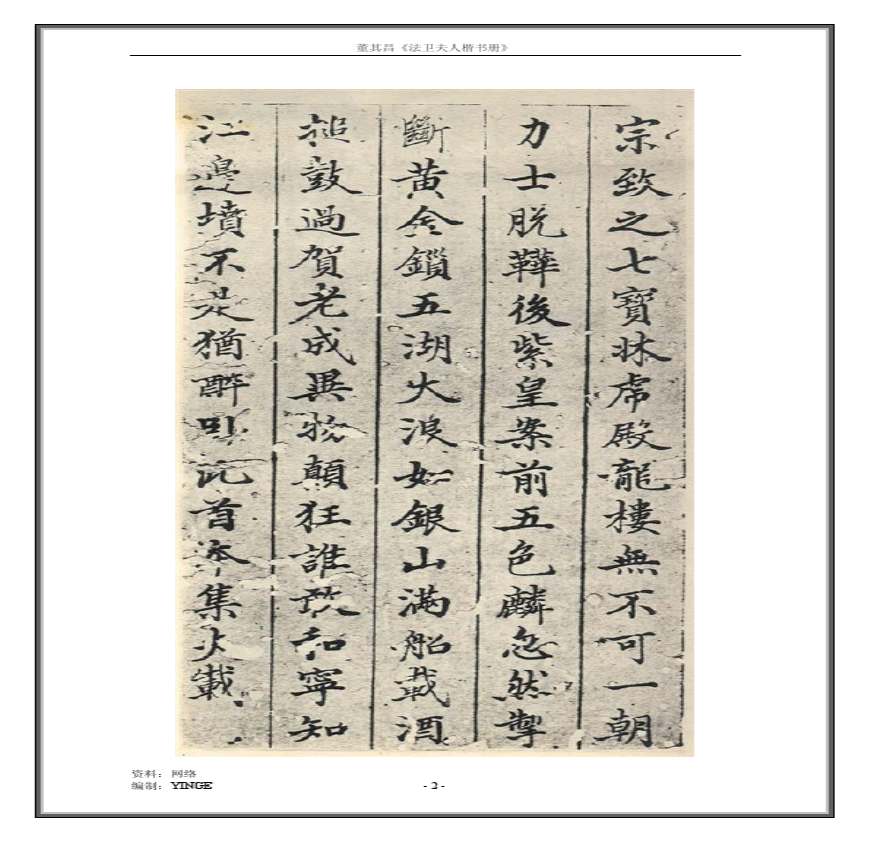 董其昌《法卫夫人楷书册》
宗致之七寶牀虎殿龍樓無不可一朝
力士脱鞾後紫皇案前五色麟忽然掣
斷黄金鎖五湖大浪如銀山滿船載酒
搥鼓過賀老成異物顛狂誰敢和寧知
江邊墳不是猶醉卧此首本集失載
资料：网络
编制：YINGE
- 2 -